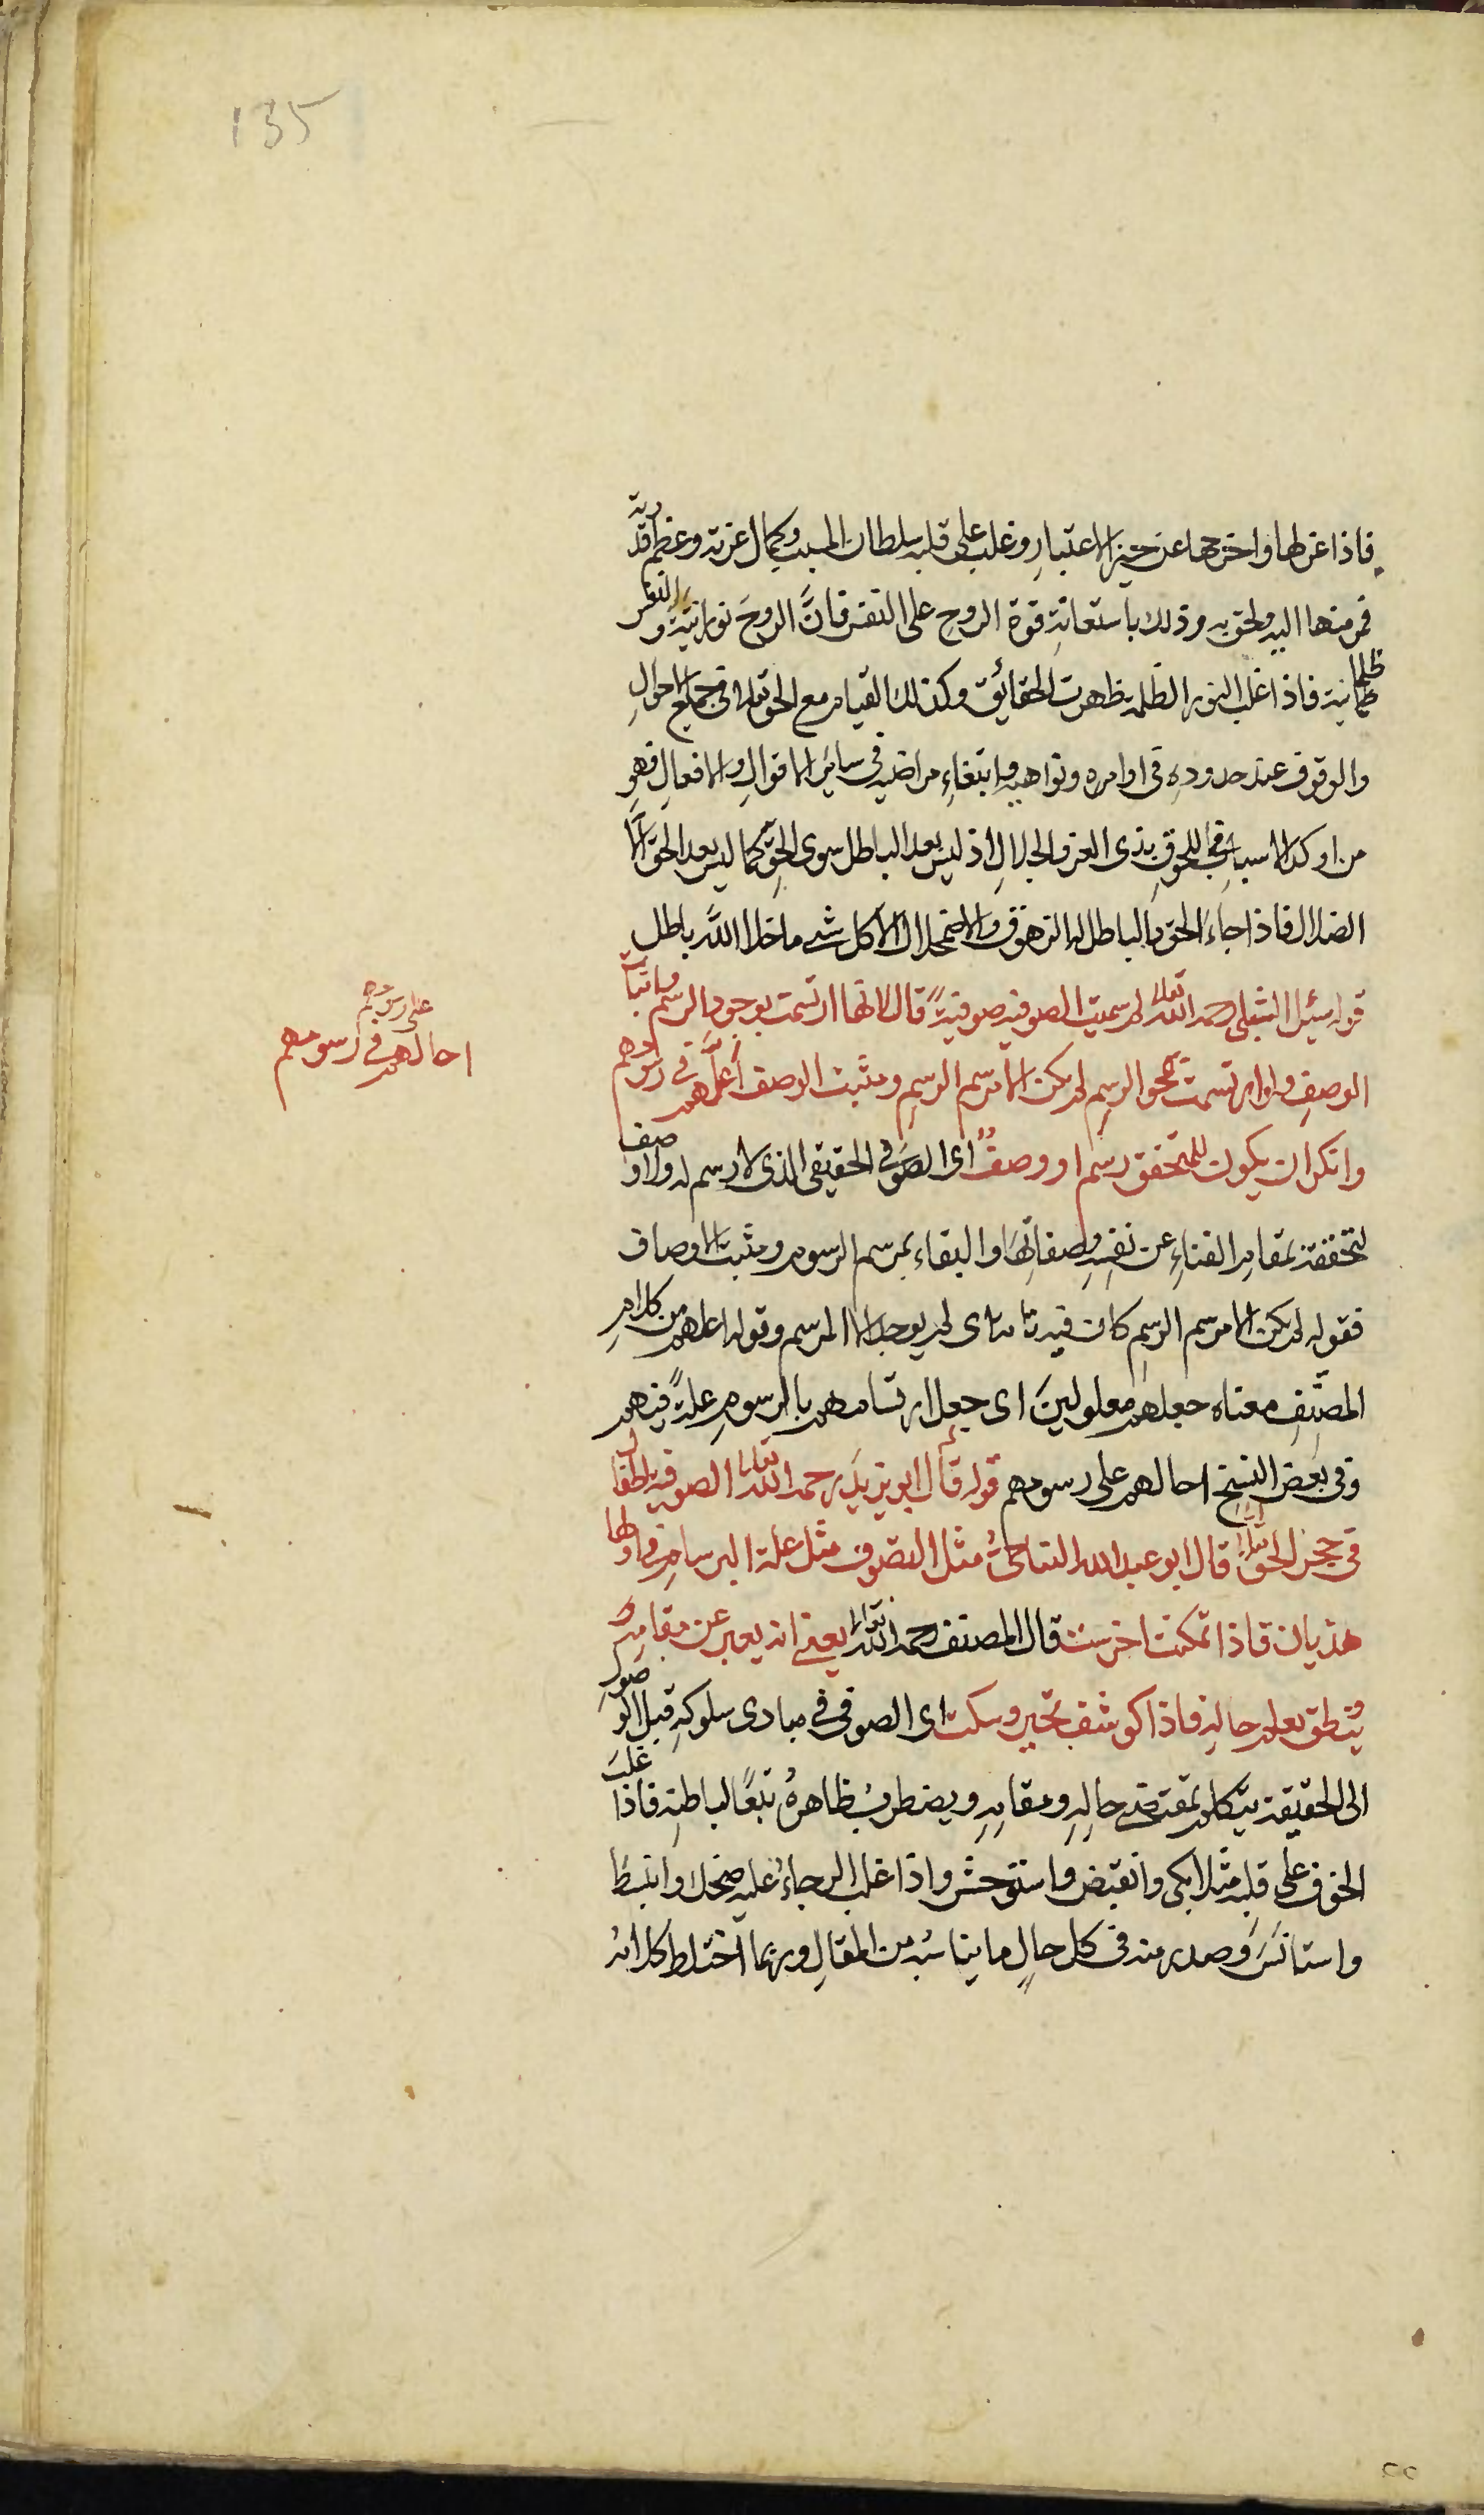 135
فاذا عزلها واخرجها عن حيز الاعتبارِ وغلب على قلبه سلطان المسبب وكمال عزته وعظم قدرته
فر منها اليه ولحق به وذلك باستعانةِ قوة الروحِ على النفس فانَّ الروحَ نورانية والنفس
ظلمانية فاذا غلب النور الظلمة ظهرت الحقائق وكذلك القيام مع الحق تعالى في جميع الاحوالِ
والوقوف عند حدودهِ في اوامره ونواهيه وابتغاءِ مراضيه في سائر الاقوالِ والافعالِ فهو
من اوكد الاسبابِ في اللحوقِ بذى العز والجلالِ اذ ليس بعد الباطل سوى الحقِ كما ليس بعد الحق الَّا
الضلال فاذا جاءَ الحق فالباطل له الزهوق والاضمحلال الا كل شئ ما خلا اللهَ باطل
قوله سئل الشبلى رحمه الله تعالى لم سميت الصوفية صوفيةً قال لانها ارتسمت بوجودِ الرسم واثبات
الوصفِ ولو ارتسمت بمحو الرسمِ لم يكن الا مرسم الرسمِ ومثبت الوصف اعلَّهم في رسومهم
على رسومهم
احالهم في رسومهم
وانكر ان يكون للمتحقق رسم او وصفٌ اى الصوفى الحقيقى الذى لا رسم له ولا وصف
لتحققه بمقام الفناءِ عن نفسِهِ وصفاتِها والبقاء بمرسم الرسوم ومثبت الاوصاف
فقوله لم يكن الا مرسم الرسمِ كان فيه تامة اى لم يوجد الا المرسم وقوله اعلهم من كلامِ
المصنِّفِ معناه جعلهم معلولينَ اى جعل ارتسامهم بالرسومِ علةً فيهم
وفى بعض النسخ احالهم على رسومهم قوله قال ابو يزيد رحمه الله تعالى الصوفية اطفال
فى حجر الحق تعالى قال ابو عبد الله النباجىُّ مثل التصوف مثل علة البرسامِ فى اولها
هذيان فاذا تمكنت اخرست قال المصنف رحمه الله تعالى يعنى انه يعبر عن مقامه و
ينطق بعلم حالهِ فاذا كوشف تحير وسكت اى الصوفى فى مبادى سلوكهِ قبل الوصولِ
الى الحقيقة يتكلم بمقتضى حالِهِ ومقامِهِ ويضطربُ ظاهرهُ تبعًا لباطنِه فاذا غلبَ
الخوف على قلبِه مثلا بكى وانقبض واستوحش واذا غلب الرجاءُ عليه ضحك وانبسط
واستانَسَ وصدر منه فى كل حالٍ ما يناسبُه من المقالِ وربما اختلط كلامُه